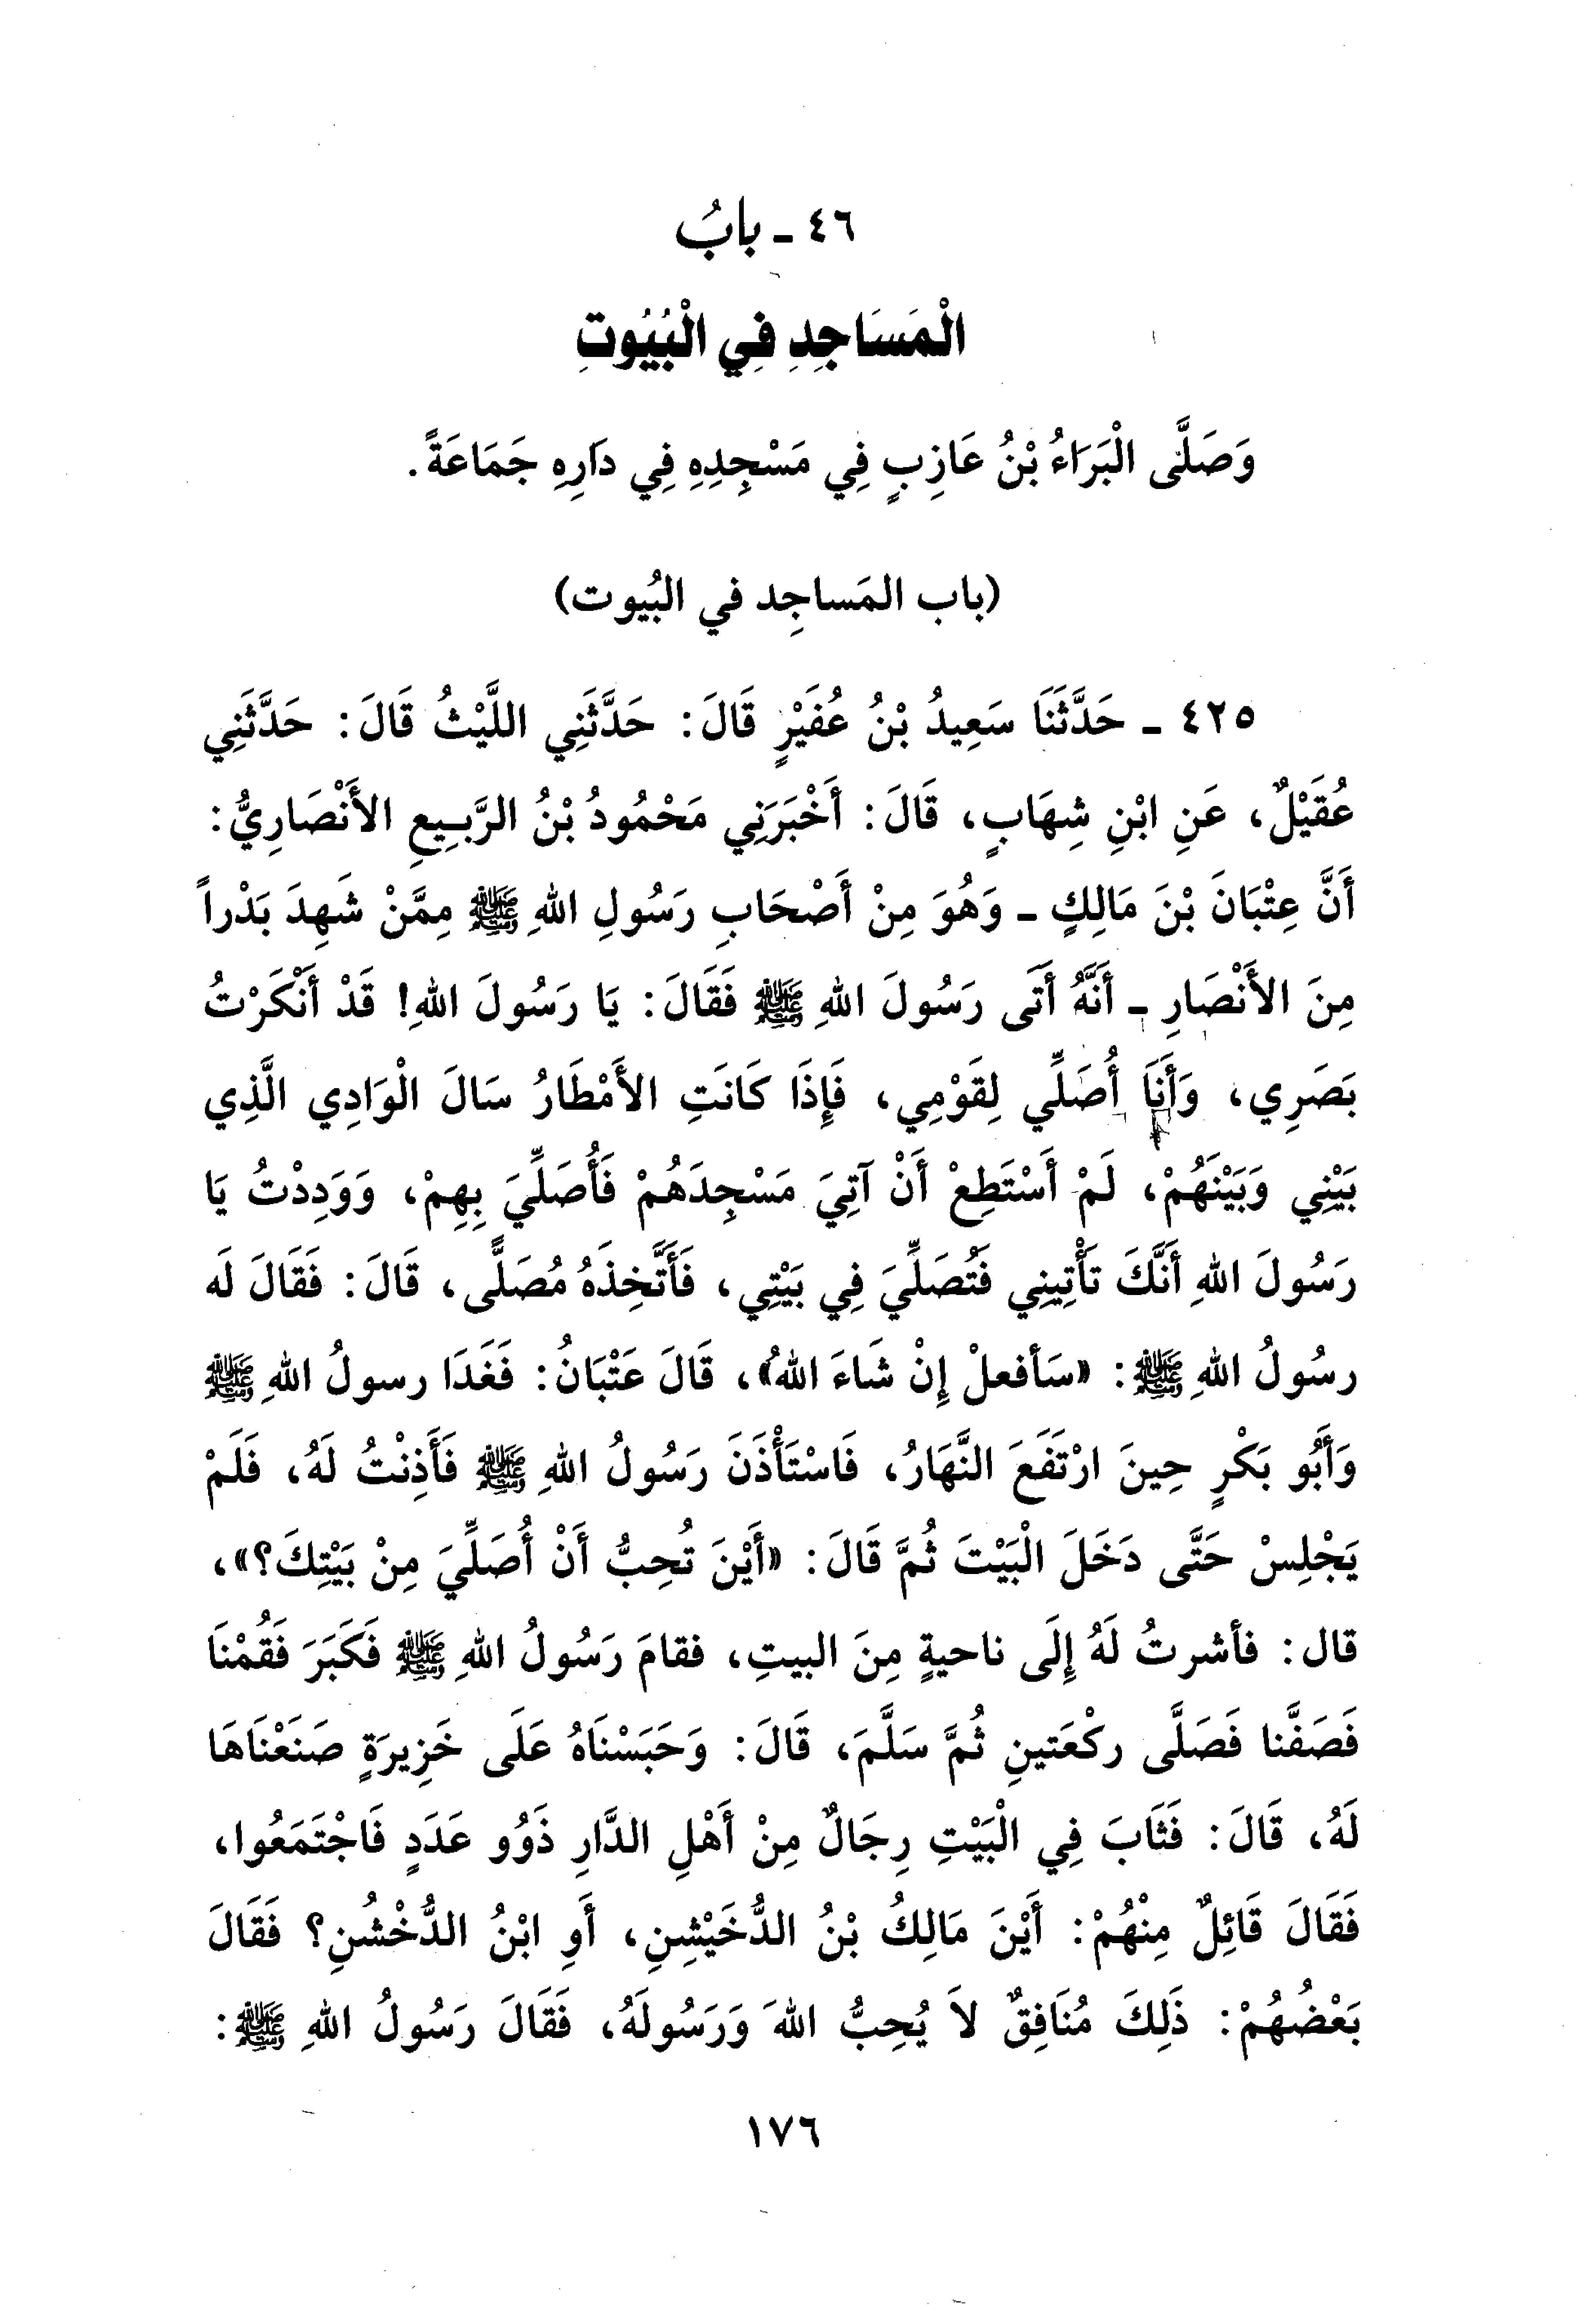 ٤٦ ـ بابُ
الْمَسَاجِدِ فِي الْبُيُوتِ
وَصَلَّى الْبَرَاءُ بْنُ عَازِبٍ فِي مَسْجِدِهِ فِي دَارِهِ جَمَاعَةً.
(باب المَساجِد في البُيوت)
٤٢٥ ـ حَدَّثَنَا سَعِيدُ بْنُ عُفَيْرٍ قَالَ: حَدَّثَنِي اللَّيْثُ قَالَ: حَدَّثَنِي
عُقَيْلٌ، عَنِ ابْنِ شِهَابٍ، قَالَ: أَخْبَرَنِي مَحْمُودُ بْنُ الرَّبِيعِ الأَنْصَارِيُّ:
أَنَّ عِتْبَانَ بْنَ مَالِكٍ ـ وَهُوَ مِنْ أَصْحَابِ رَسُولِ اللهِ ﷺ مِمَّنْ شَهِدَ بَدْراً
مِنَ الأَنْصَارِ ـ أَنَّهُ أَتَى رَسُولَ اللهِ ﷺ فَقَالَ: يَا رَسُولَ اللهِ! قَدْ أَنْكَرْتُ
بَصَرِي، وَأَنَا أُصَلِّي لِقَوْمِي، فَإِذَا كَانَتِ الأَمْطَارُ سَالَ الْوَادِي الَّذِي
بَيْنِي وَبَيْنَهُمْ، لَمْ أَسْتَطِعْ أَنْ آتِيَ مَسْجِدَهُمْ فَأُصَلِّيَ بِهِمْ، وَوَدِدْتُ يَا
رَسُولَ اللهِ أَنَّكَ تَأْتِينِي فَتُصَلِّيَ فِي بَيْتِي، فَأَتَّخِذَهُ مُصَلًّى، قَالَ: فَقَالَ لَه
رسُولُ اللهِ ﷺ: «سَأفعلْ إِنْ شَاءَ اللهُ»، قَالَ عَتْبَانُ: فَغَدَا رسولُ اللهِ ﷺ
وَأَبُو بَكْرٍ حِينَ ارْتَفَعَ النَّهَارُ، فَاسْتَأْذَنَ رَسُولُ اللهِ ﷺ فَأَذِنْتُ لَهُ، فَلَمْ
يَجْلِسْ حَتَّى دَخَلَ الْبَيْتَ ثُمَّ قَالَ: «أَيْنَ تُحِبُّ أَنْ أُصَلِّيَ مِنْ بَيْتِكَ؟»،
قال: فأشرتُ لَهُ إِلَى ناحيةٍ مِنَ البيتِ، فقامَ رَسُولُ اللهِ ﷺ فَكَبَرَ فَقُمْنَا
فَصَفَّنا فَصَلَّى ركْعَتينِ ثُمَّ سَلَّمَ، قَالَ: وَحَبَسْنَاهُ عَلَى خَزِيرَةٍ صَنَعْنَاهَا
لَهُ، قَالَ: فَثَابَ فِي الْبَيْتِ رِجَالٌ مِنْ أَهْلِ الدَّارِ ذَوُو عَدَدٍ فَاجْتَمَعُوا،
فَقَالَ قَائِلٌ مِنْهُمْ: أَيْنَ مَالِكُ بْنُ الدُّخَيْشِنِ، أَوِ ابْنُ الدُّخْشُنِ؟ فَقَالَ
بَعْضُهُمْ: ذَلِكَ مُنَافِقٌ لاَ يُحِبُّ اللهَ وَرَسُولَهُ، فَقَالَ رَسُولُ اللهِ ﷺ:
١٧٦